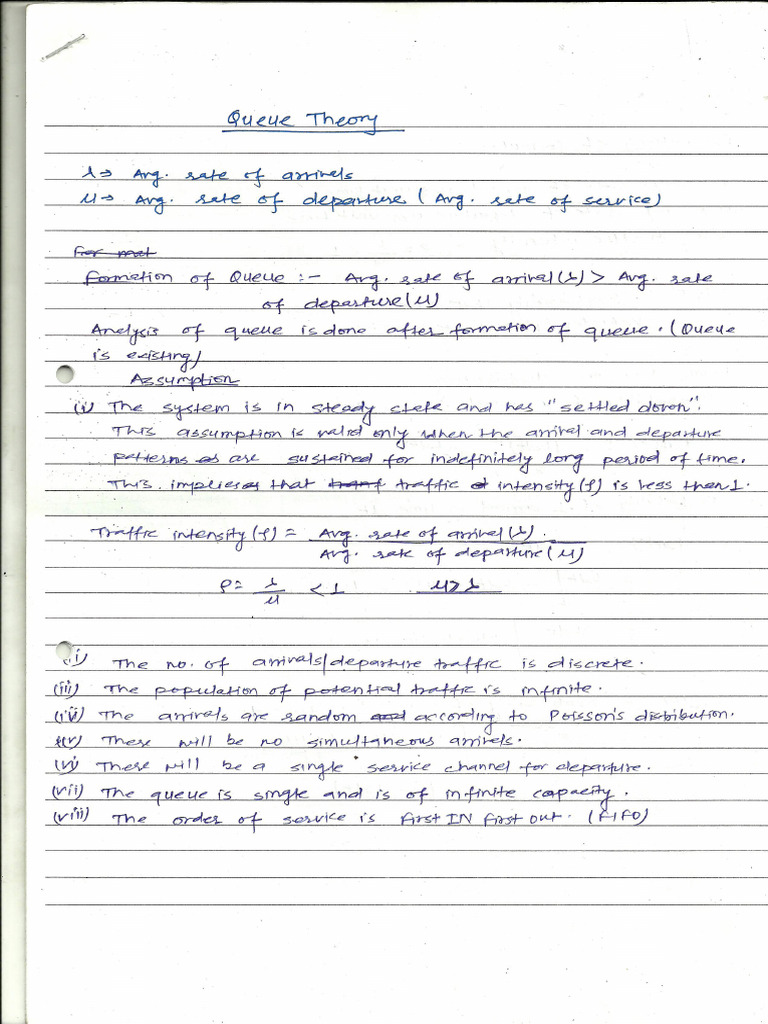 Queue Theory
λ⇒ Avg. rate of arrivals
μ⇒ Avg. rate of departure ( Avg. rate of service)
For mat
Formation of Queue :- Avg. rate of arrival(λ) > Avg. rate
of departure(μ)
Analysis of queue is done after formation of queue. (Queue
is existing)
Assumption
(i) The system is in steady state and has "settled down".
This assumption is valid only when the arrival and departure
patterns as are sustained for indefinitely long period of time.
This implies as that traffic intensity(ρ) is less then 1.
Traffic intensity(ρ) = Avg. rate of arrival(λ).
Avg. rate of departure(μ)
ρ= λ/μ < 1 μ>λ
(ii) The no. of arrivals/departure traffic is discrete.
(iii) The population of potential traffic is infinite.
(iv) The arrivals are random and according to Poisson's distbibution.
(v) There will be no simultaneous arrivals.
(vi) There will be a single service channel for departure.
(vii) The queue is single and is of infinite capacity.
(viii) The order of service is First IN First out. (FIFO)